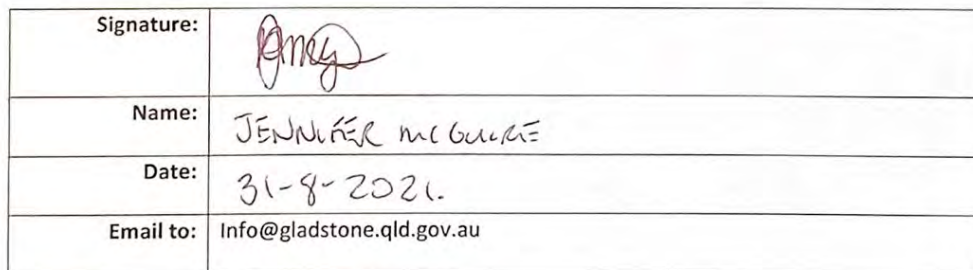 Signature:
Name: JENNIFER MCGUIRE
Date: 31-8-2021.
Email to: Info@gladstone.qld.gov.au